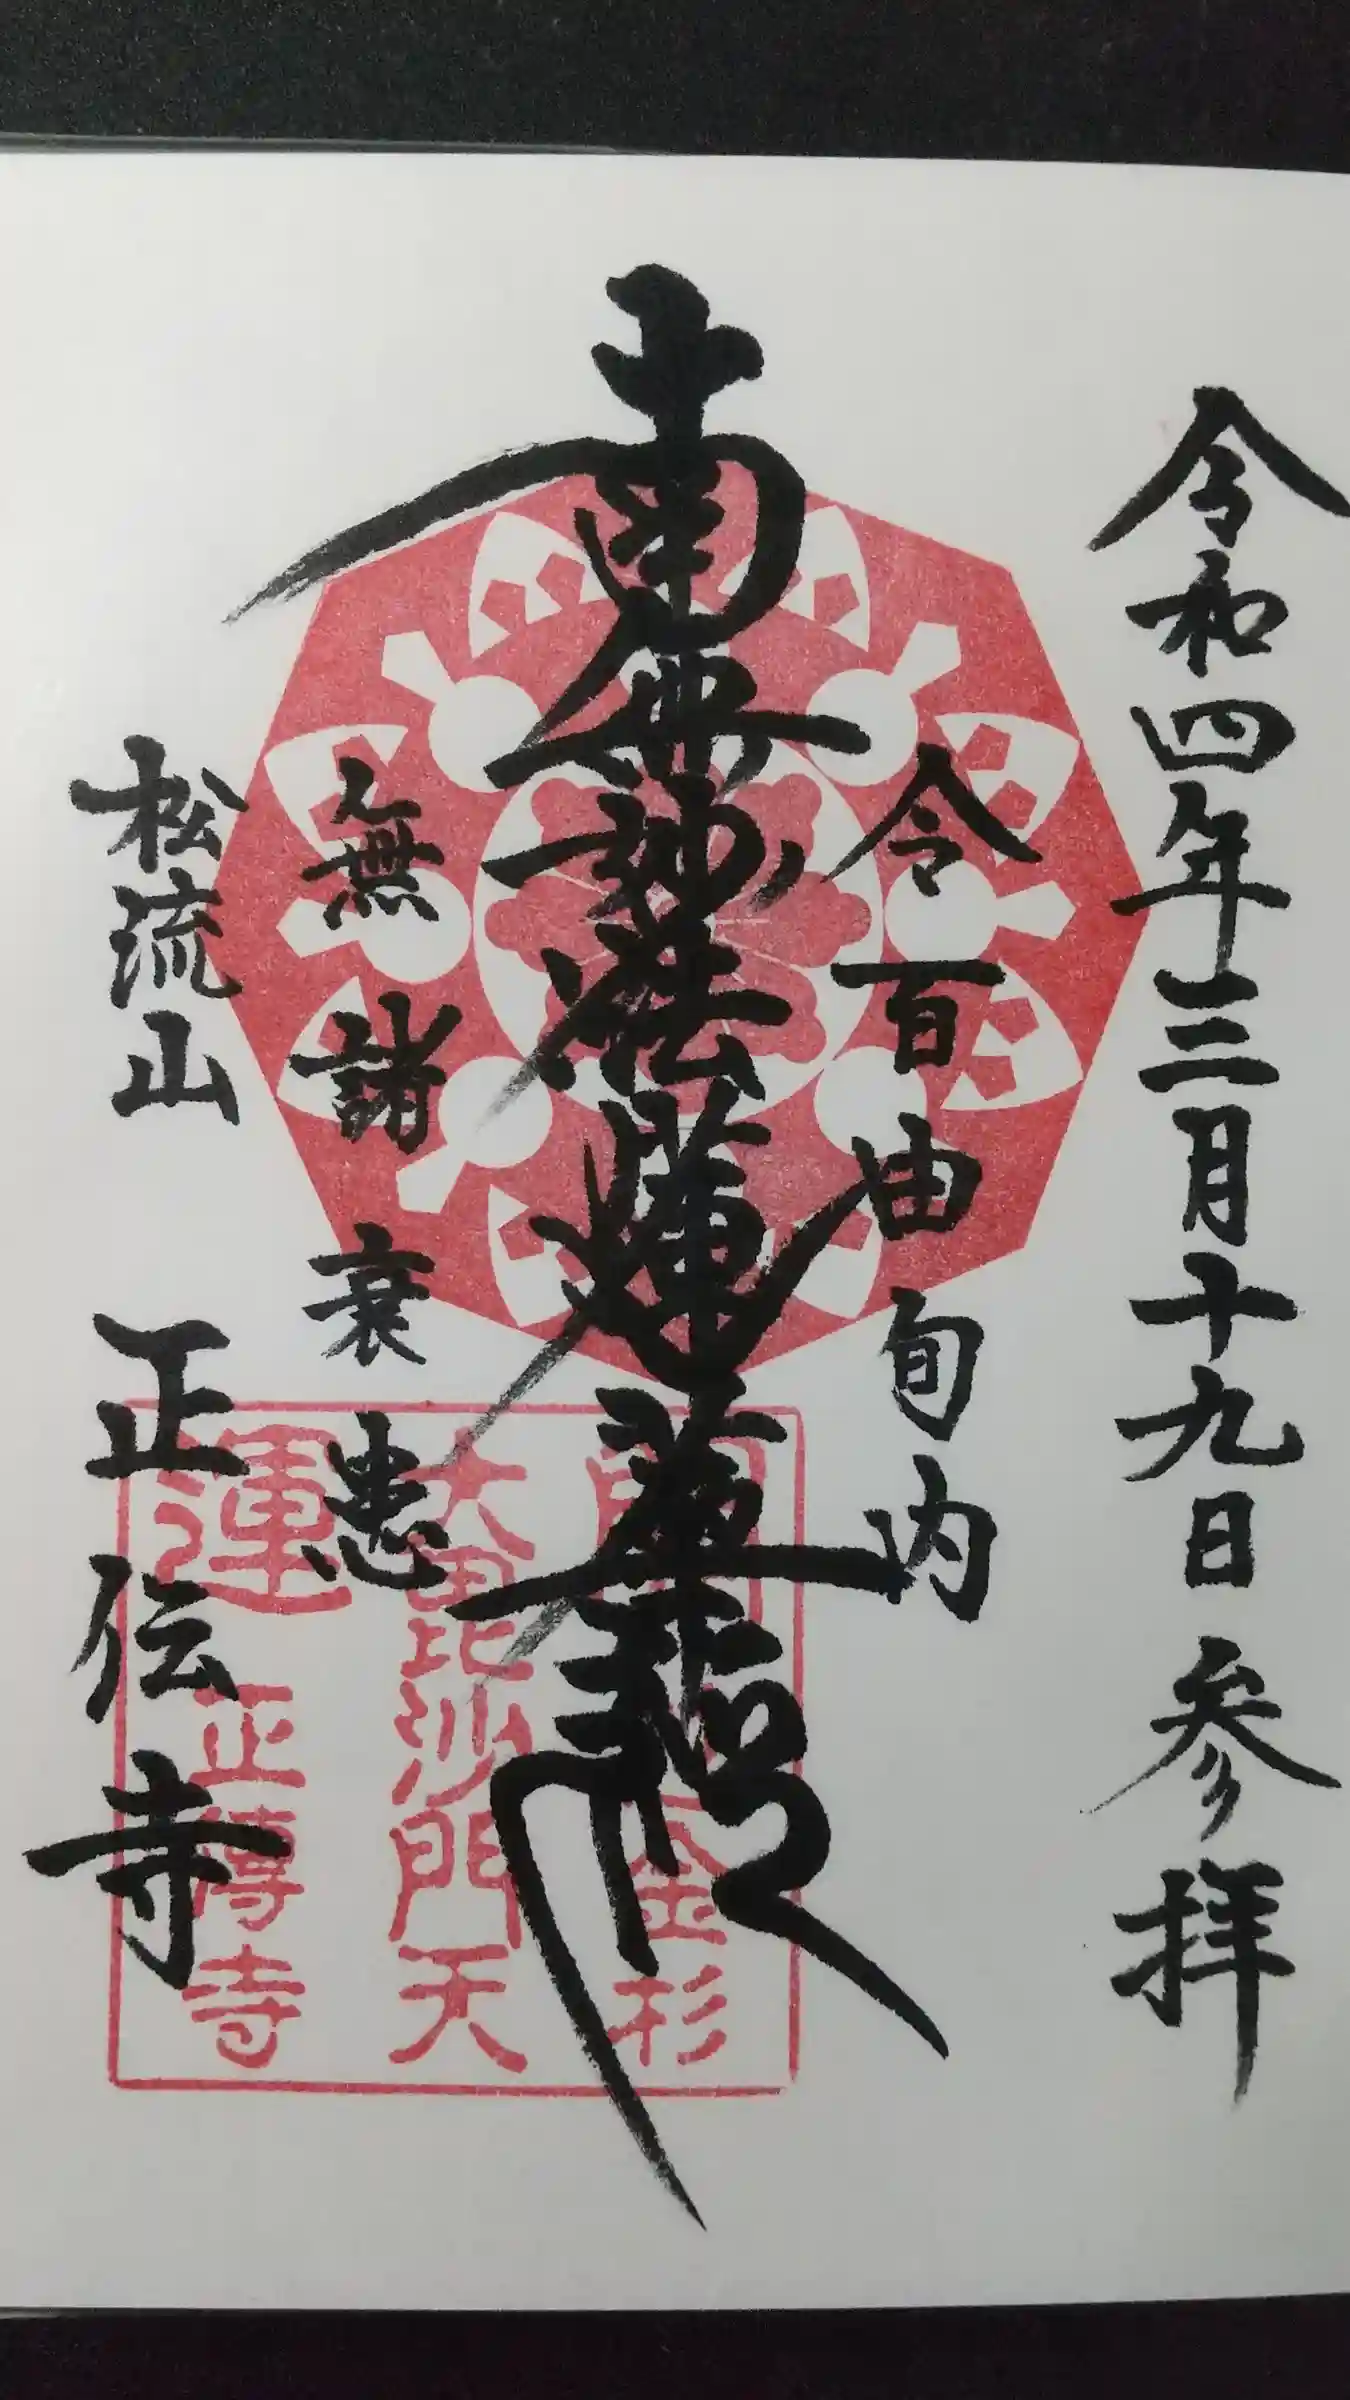 令和四年三月十九日 参拝
令百由旬内
南無妙法蓮華経
無諸衰患
松流山 正伝寺
金杉
大毘沙門天
運 正傳寺